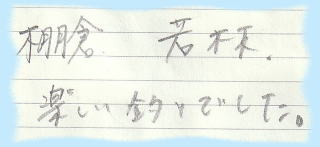 棚倉 若林.
楽しい釣りでした。